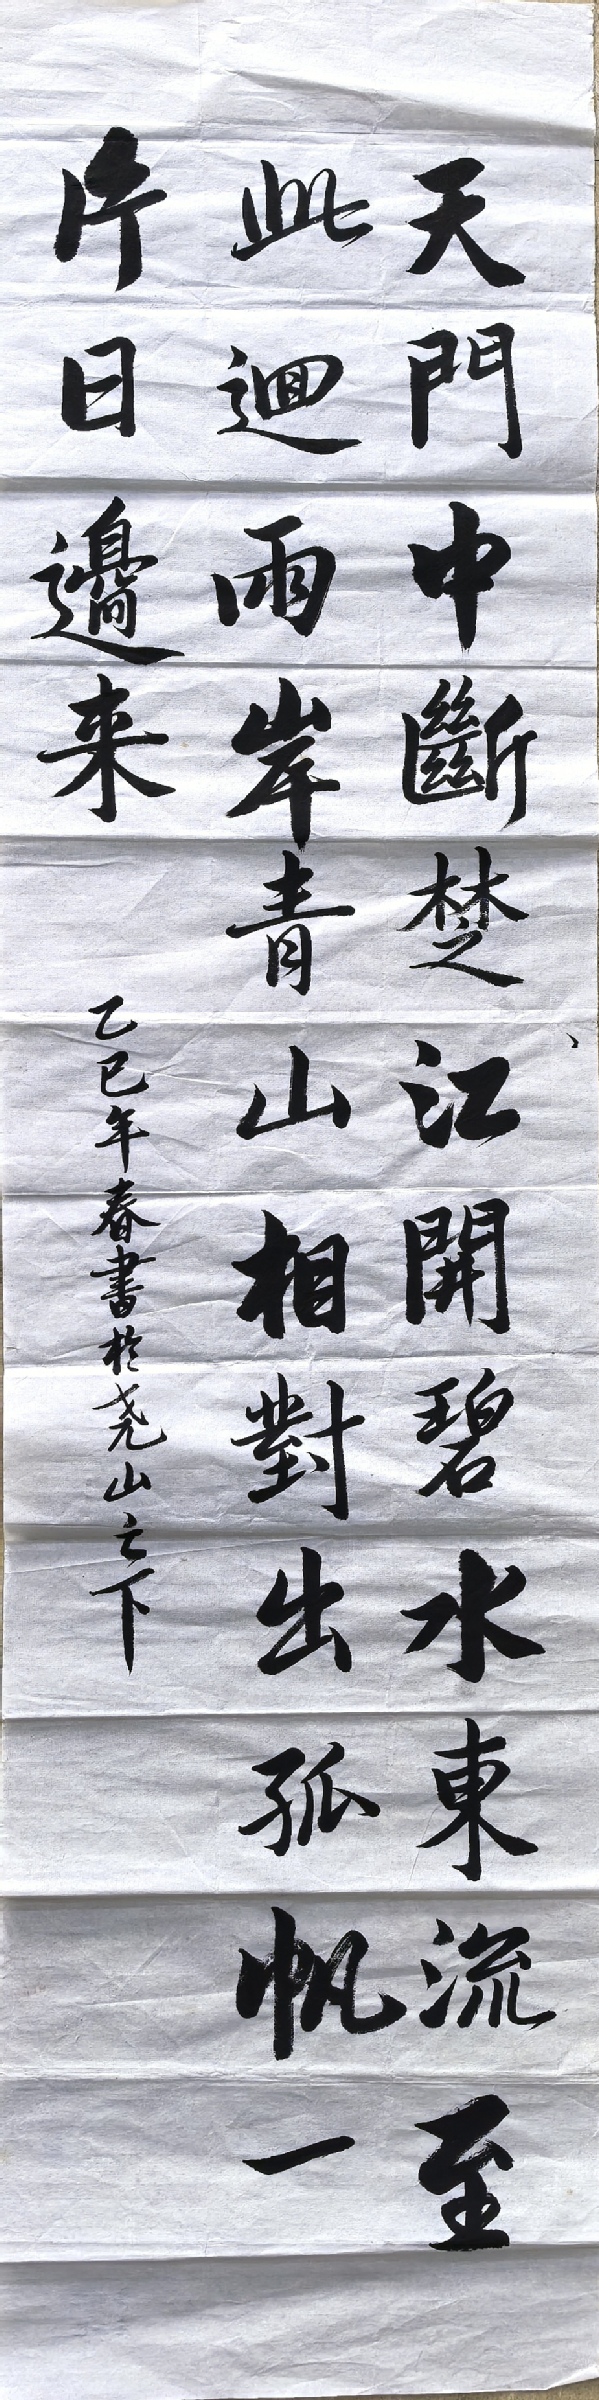 天門中斷楚江開碧水東流至
此迴兩岸青山相對出孤帆一
片日邊来
乙巳年春書於尧山之下